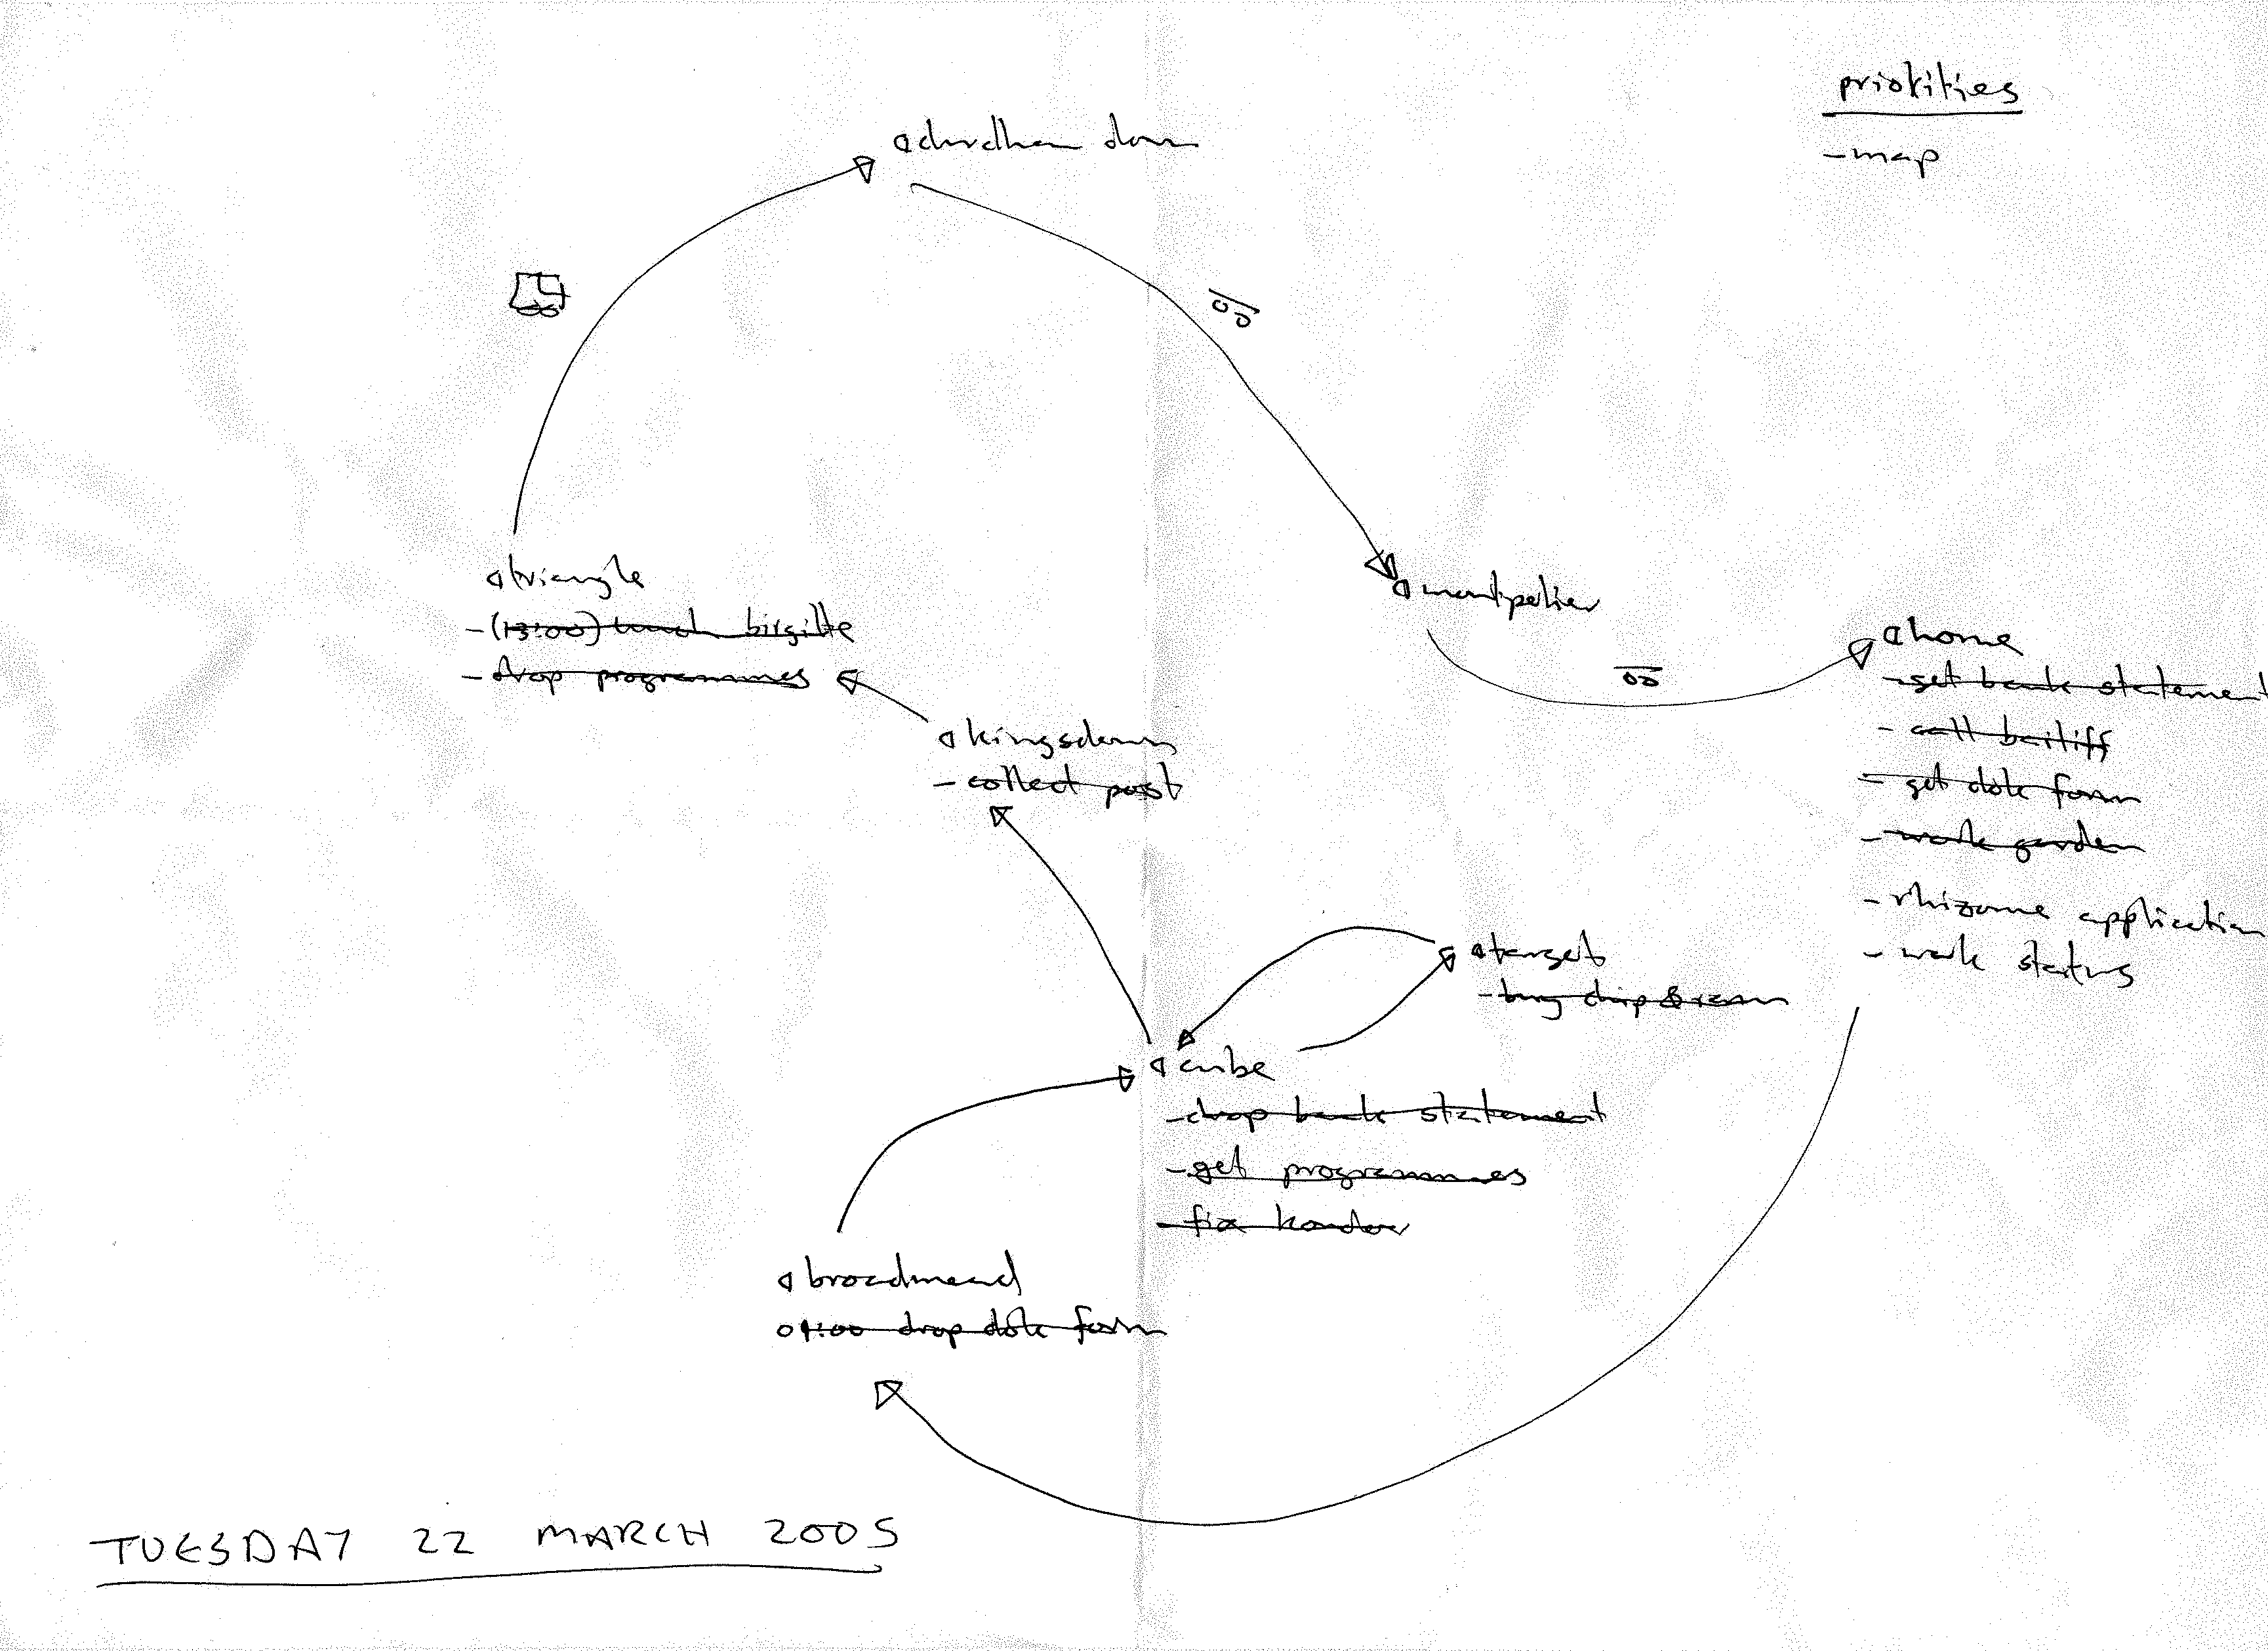 priorities
- map
durdham down
triangle
- (13:00) lunch birgitte
- drop programmes
montpelier
home
- get bank statement
- call bailiff
- get dole form
- work garden
- rhizome application
- work status
kingsdown
- collect post
target
- buy chip & ram
cube
- drop bank statement
- get programmes
- fix
broadmead
09:00 drop dole form
TUESDAY 22 MARCH 2005